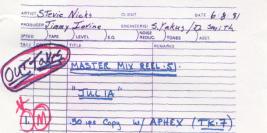 ARTIST Stevie Nicks CLIENT DATE 6/8/81
PRODUCER Jimmy Iovine ENGINEER(S) S. Yakus / D. Smith
SPEED TAPE LEVEL E.Q. NOISE REDUC. TONES ASST.
TITLE REMARKS
OUT TAKES
MASTER MIX REEL-5.
"JULIA"
1. M 30 ips Copy w/ APHEX (TK.7)